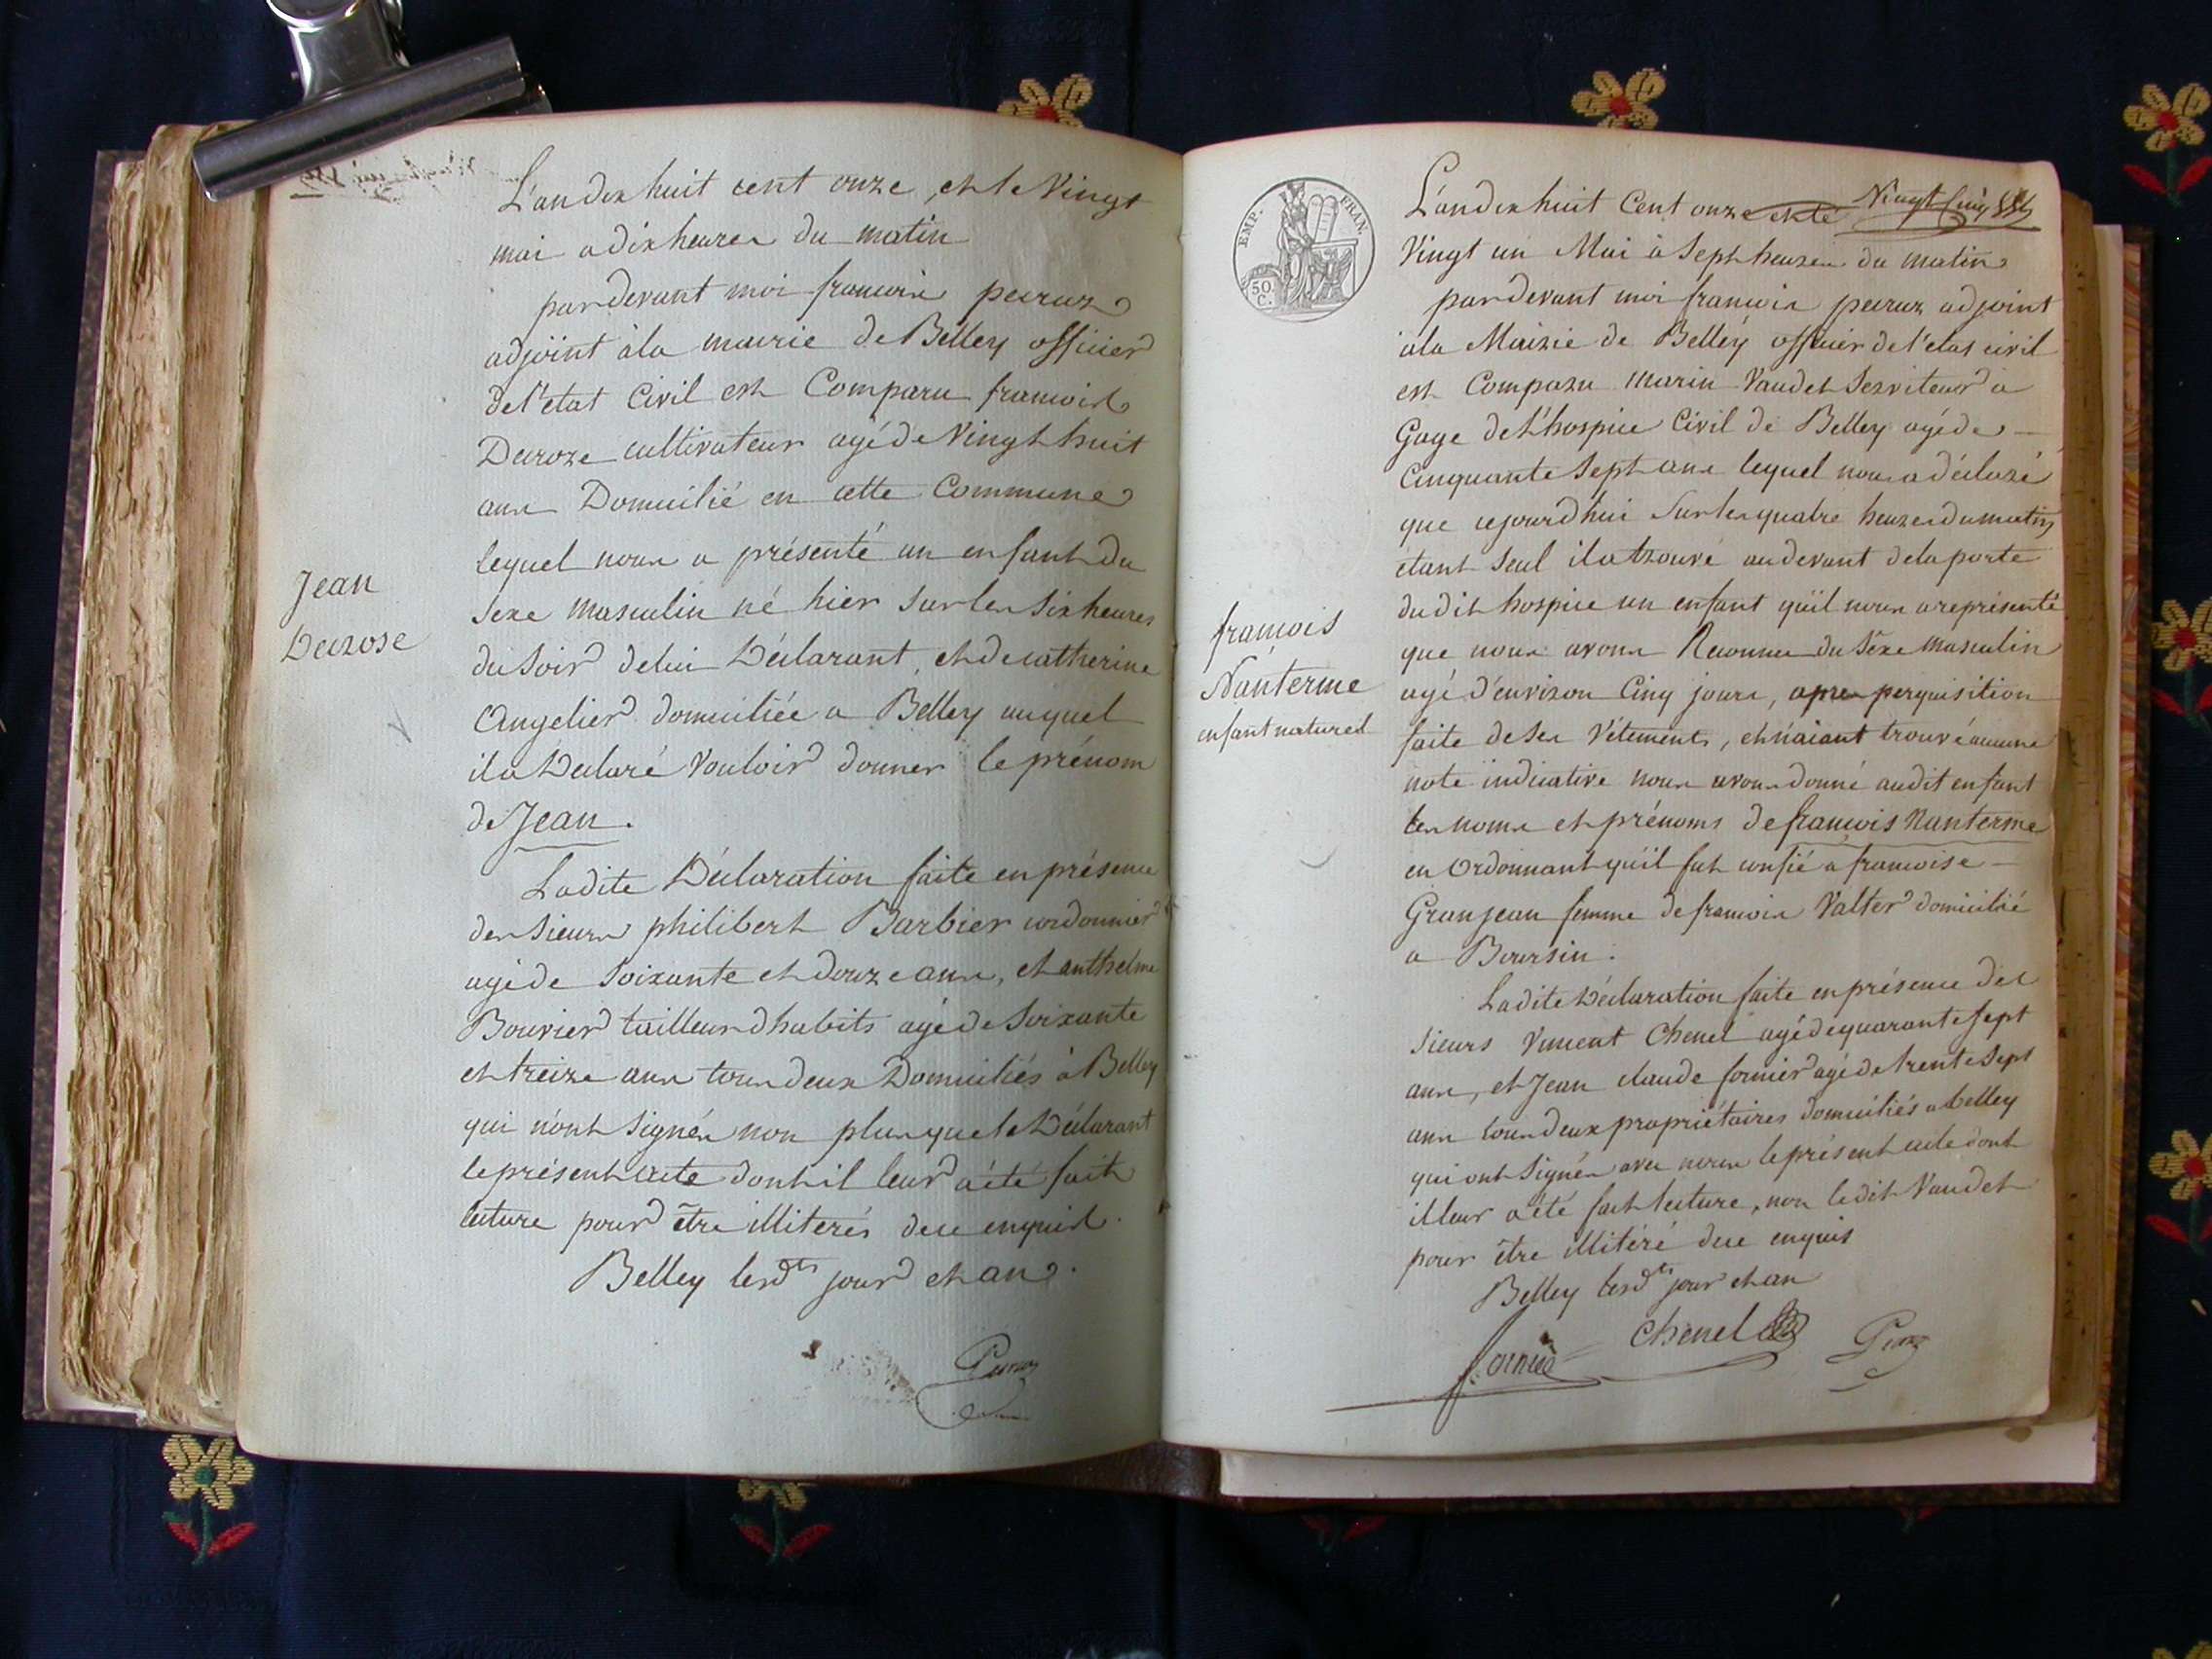 L'an dix huit cent onze, et le Vingt
mai a dix heures du matin
pardevant moi francois peeruz
adjoint à la mairie de Belley officier
de l'etat Civil est Comparu francois
Decroze cultivateur agé de Vingt huit
ans Domicilié en cette Commune
lequel nous a présenté un enfant du
Sexe masculin né hier sur les six heures
du Soir de lui Déclarant, et de catherine
Angelier domiciliée a Belley auquel
il a Déclaré Vouloir donner le prénom
de Jean.
Ladite Déclaration faite en présence
des Sieurs philibert Barbier cordonnier
agé de Soixante et douze ans, et anthelme
Bouvier tailleur d'habits agé de Soixante
et treize ans tous deux Domiciliés à Belley
qui n'ont Signés non plus que le Déclarant
le présent acte dont il leur a été fait
lecture pour être illiterés de ce enquis.
Belley lesdts jour et an.
Jean
Decrose
EMP. FRAN.
50 C.
L'an dix huit Cent onze et le Vingt Cinq
Vingt un Mai à Sept heures du matin
pardevant moi francois peeruz adjoint
à la Mairie de Belley officier de l'etat civil
est Comparu marin Vaudet Serviteur à
Gage de l'hospice Civil de Belley agé de
Cinquante Sept ans lequel nous a déclaré
que cejourd'hui Sur les quatre heures du matin
étant Seul il a trouvé au devant de la porte
dudit hospice un enfant qu'il nous a représenté
que nous avons Reconnu du Sèxe masculin
agé d'environ Cinq jours, apres perquisition
faite de Ses Vétements, et n'aiant trouvé aucune
note indicative nous avons donné audit enfant
les noms et prénoms de francois Nanterme
en Ordonnant qu'il fut confié a francoise
Granjean femme de francois Valter domicilié
a Boursin.
Ladite Déclaration faite en présence des
Sieurs Vincent Chenel agé de quarante Sept
ans, et Jean claude fornier agé de trente Sept
ans tous deux propriétaires domiciliés a belley
qui ont Signés avec nous le présent acte dont
il leur a été fait lecture, non ledit Vaudet
pour être illitéré de ce enquis
Belley lesdts jour et an
Chenel
francois
Nanterme
enfant naturel